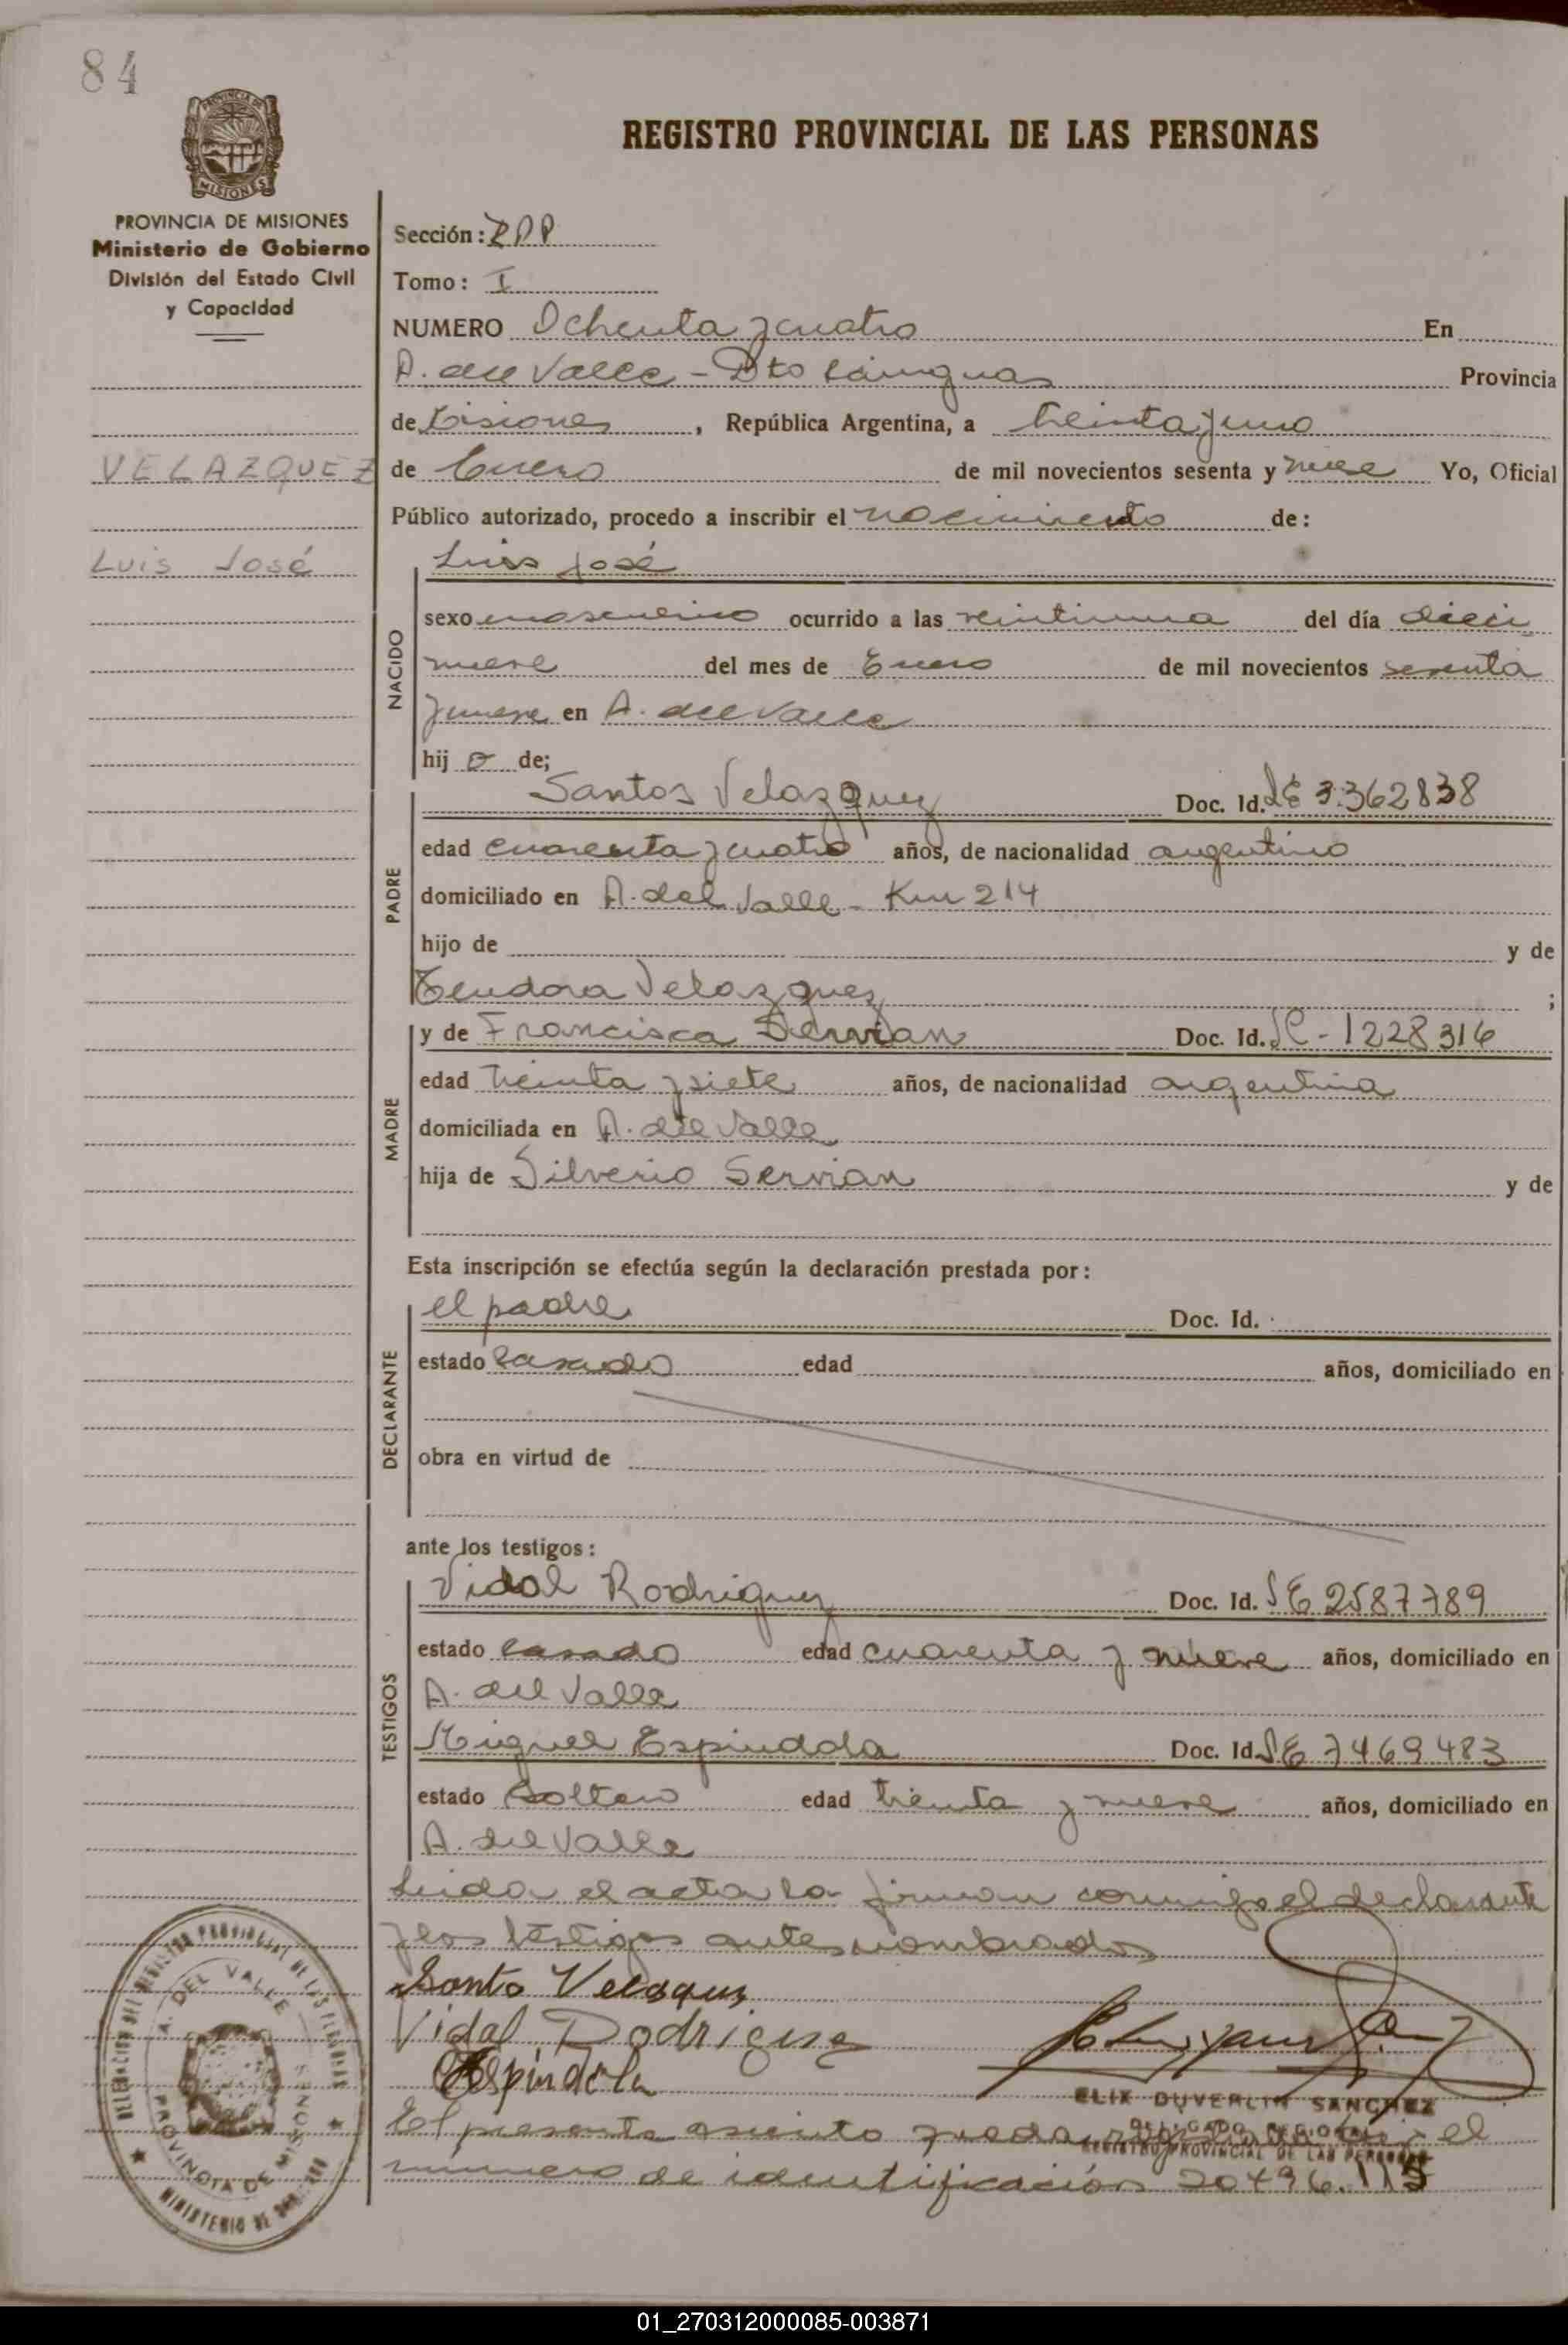 84
PROVINCIA DE MISIONES
REGISTRO PROVINCIAL DE LAS PERSONAS
PROVINCIA DE MISIONES
Ministerio de Gobierno
División del Estado Civil
y Capacidad
VELAZQUEZ
Luis José
Sección: RPP
Tomo: I
NUMERO Ochenta y cuatro En
A. del Valle - Dto Cainguas Provincia
de Misiones, República Argentina, a treinta y uno
de Enero de mil novecientos sesenta y nueve Yo, Oficial
Público autorizado, procedo a inscribir el nacimiento de:
Luis José
NACIDO
sexo masculino ocurrido a las veintiuna del día dieci
nueve del mes de Enero de mil novecientos sesenta
y nueve en A. del Valle
hij o de;
PADRE
Santos Velazquez Doc. Id. LE 3.362838
edad cuarenta y cuatro años, de nacionalidad argentino
domiciliado en A. del Valle - Km 214
hijo de y de
Teudora Velazquez ;
MADRE
y de Francisca Servian Doc. Id. LC - 1228316
edad treinta y siete años, de nacionalidad argentina
domiciliada en A. del Valle
hija de Silverio Servian y de
Esta inscripción se efectúa según la declaración prestada por:
DECLARANTE
el padre Doc. Id.
estado casado edad años, domiciliado en
obra en virtud de
ante los testigos:
TESTIGOS
Vidal Rodriguez Doc. Id. LE 2587789
estado casado edad cuarenta y nueve años, domiciliado en
A. del Valle
Miguel Espindola Doc. Id. LE 7469483
estado soltero edad treinta y nueve años, domiciliado en
A. del Valle
Leida el acta la firman conmigo el declarante
y los testigos antes nombrados
Santo Velaquz
Vidal Rodriguez
Espindola
ELIX DUVERLIN SANCHEZ
DELEGADO REGIONAL
REGISTRO PROVINCIAL DE LAS PERSONAS
El presente asiento queda el
numero de identificación 20496.113
DELEGACION DEL REGISTRO PROVINCIAL DE LAS PERSONAS
A. DEL VALLE
PROVINCIA DE MISIONES
MINISTERIO DE
01_270312000085-003871